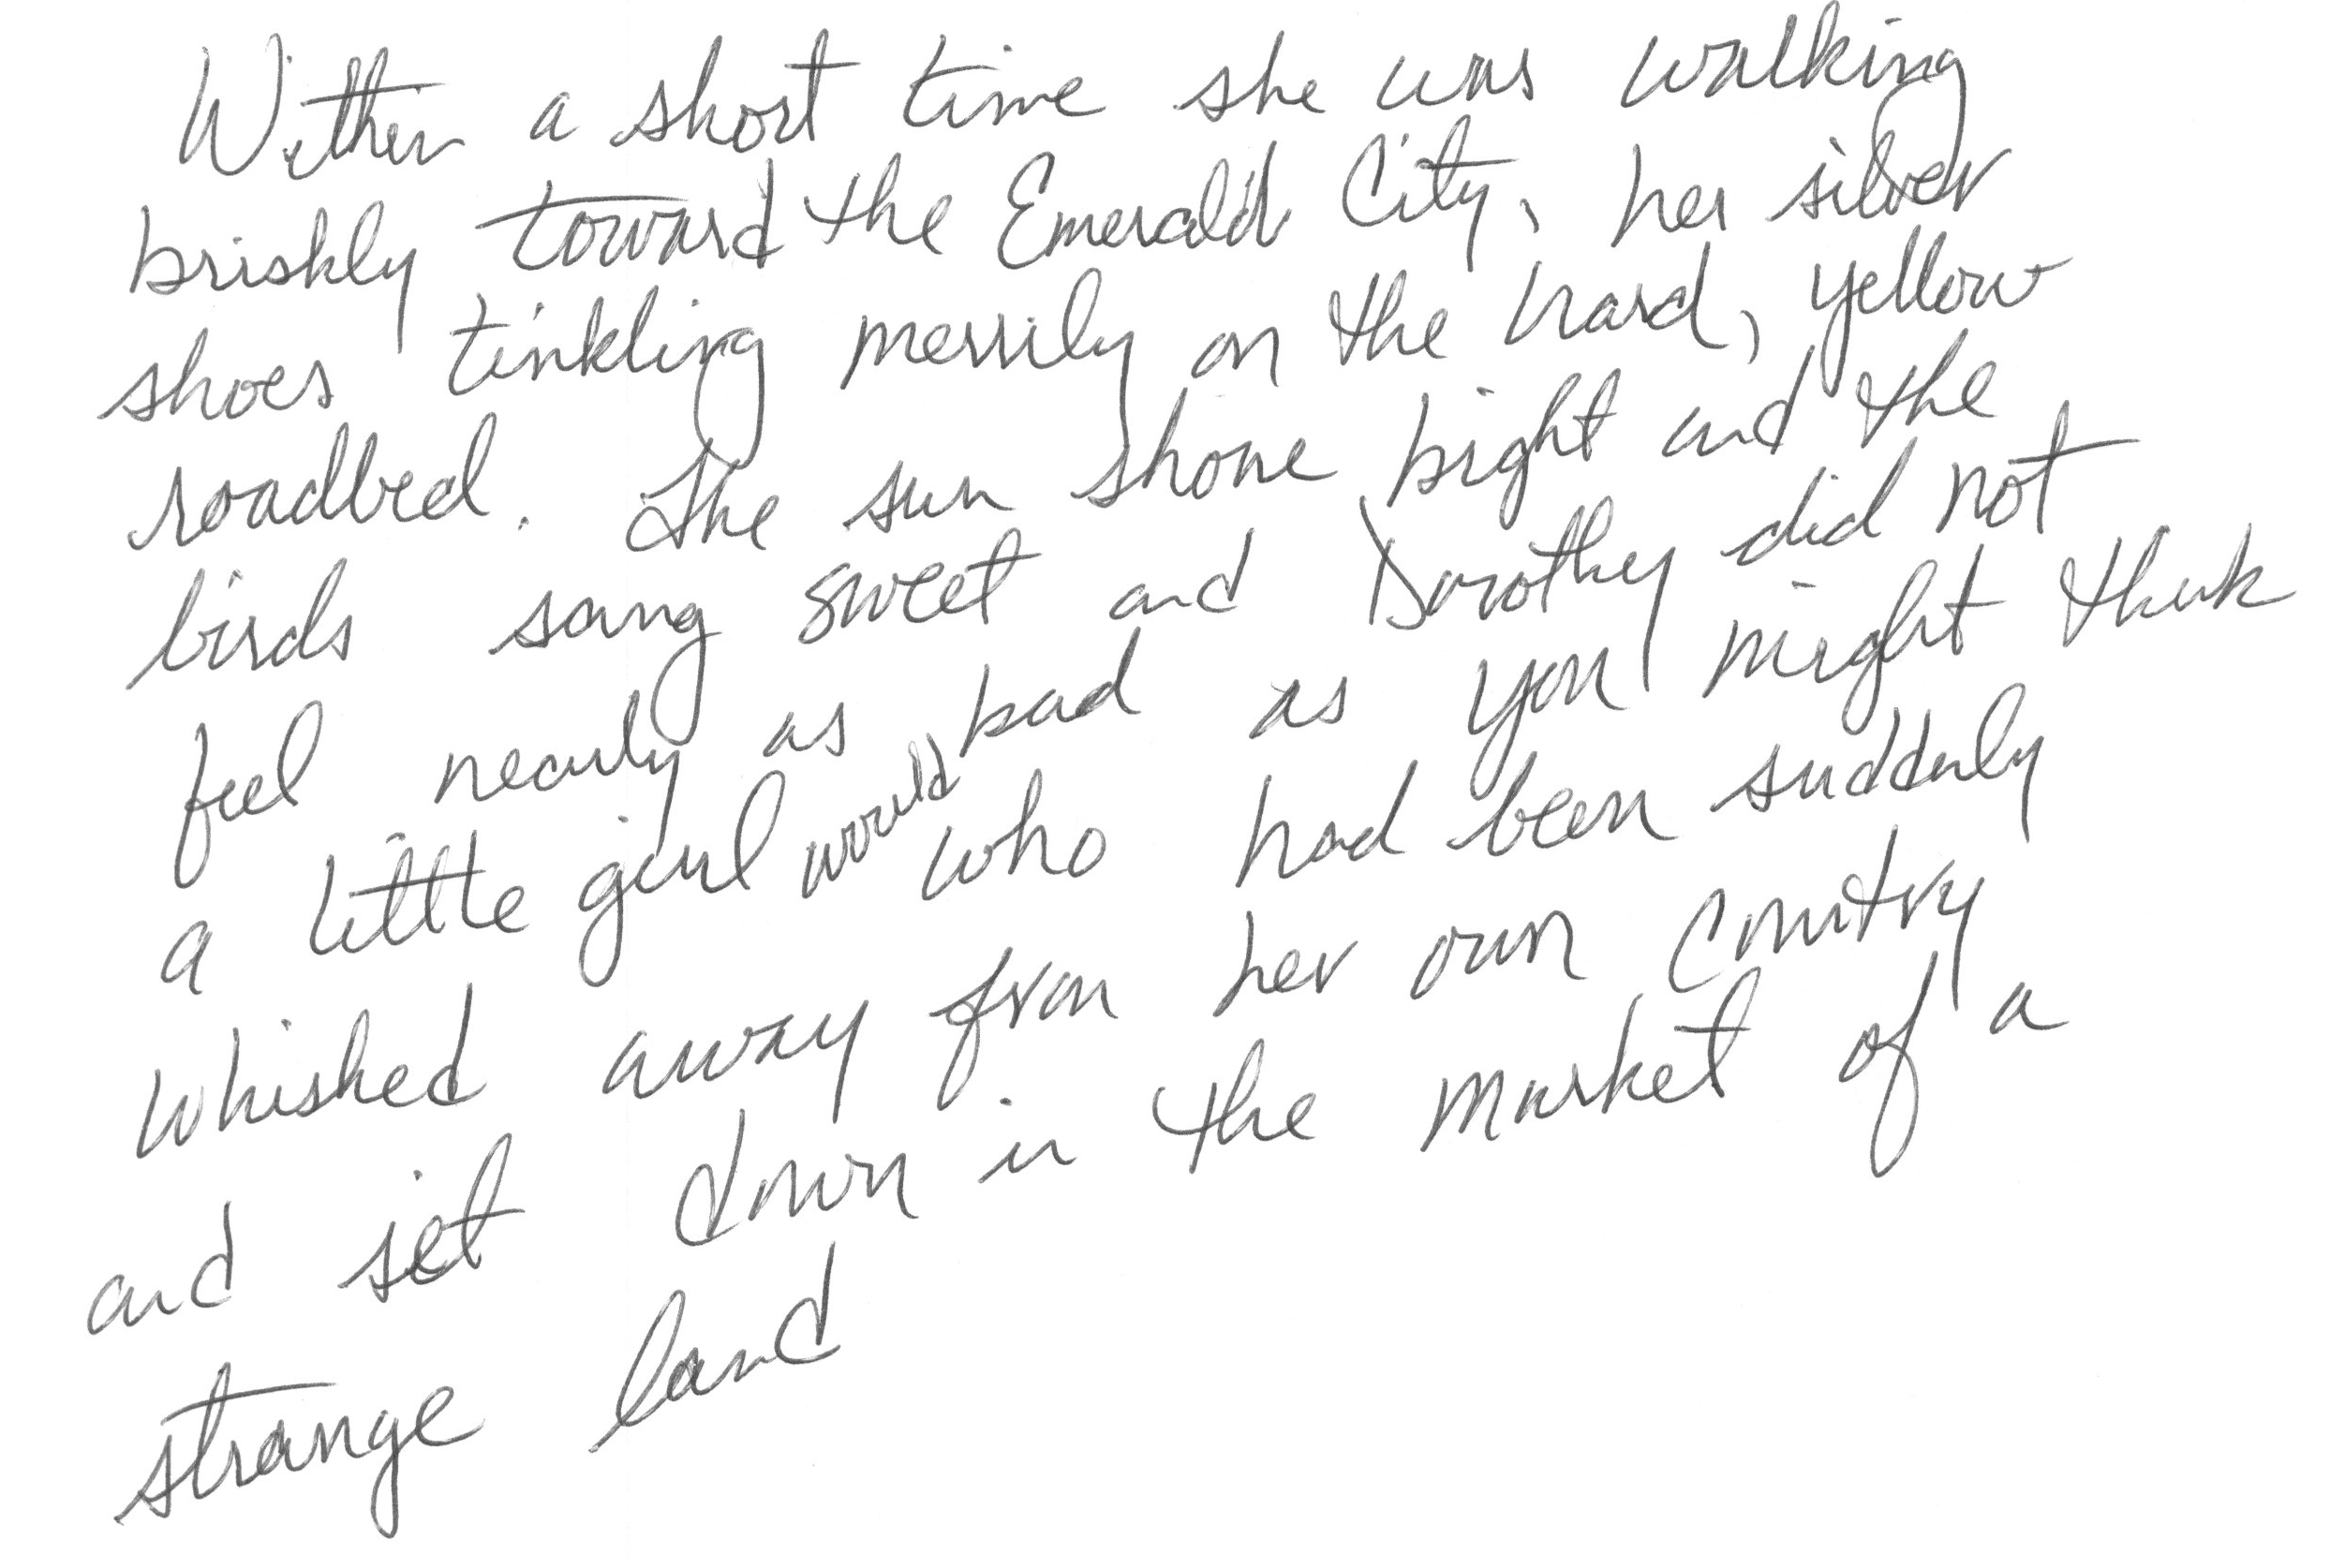 Within a short time she was walking
briskly toward the Emerald City, her silver
shoes tinkling merrily on the hard, yellow
roadbed. The sun shone bright and the
birds sang sweet and Dorothy did not
feel nearly as bad as you might think
a little girl would who had been suddenly
whished away from her own country
and set down in the market of a
strange land